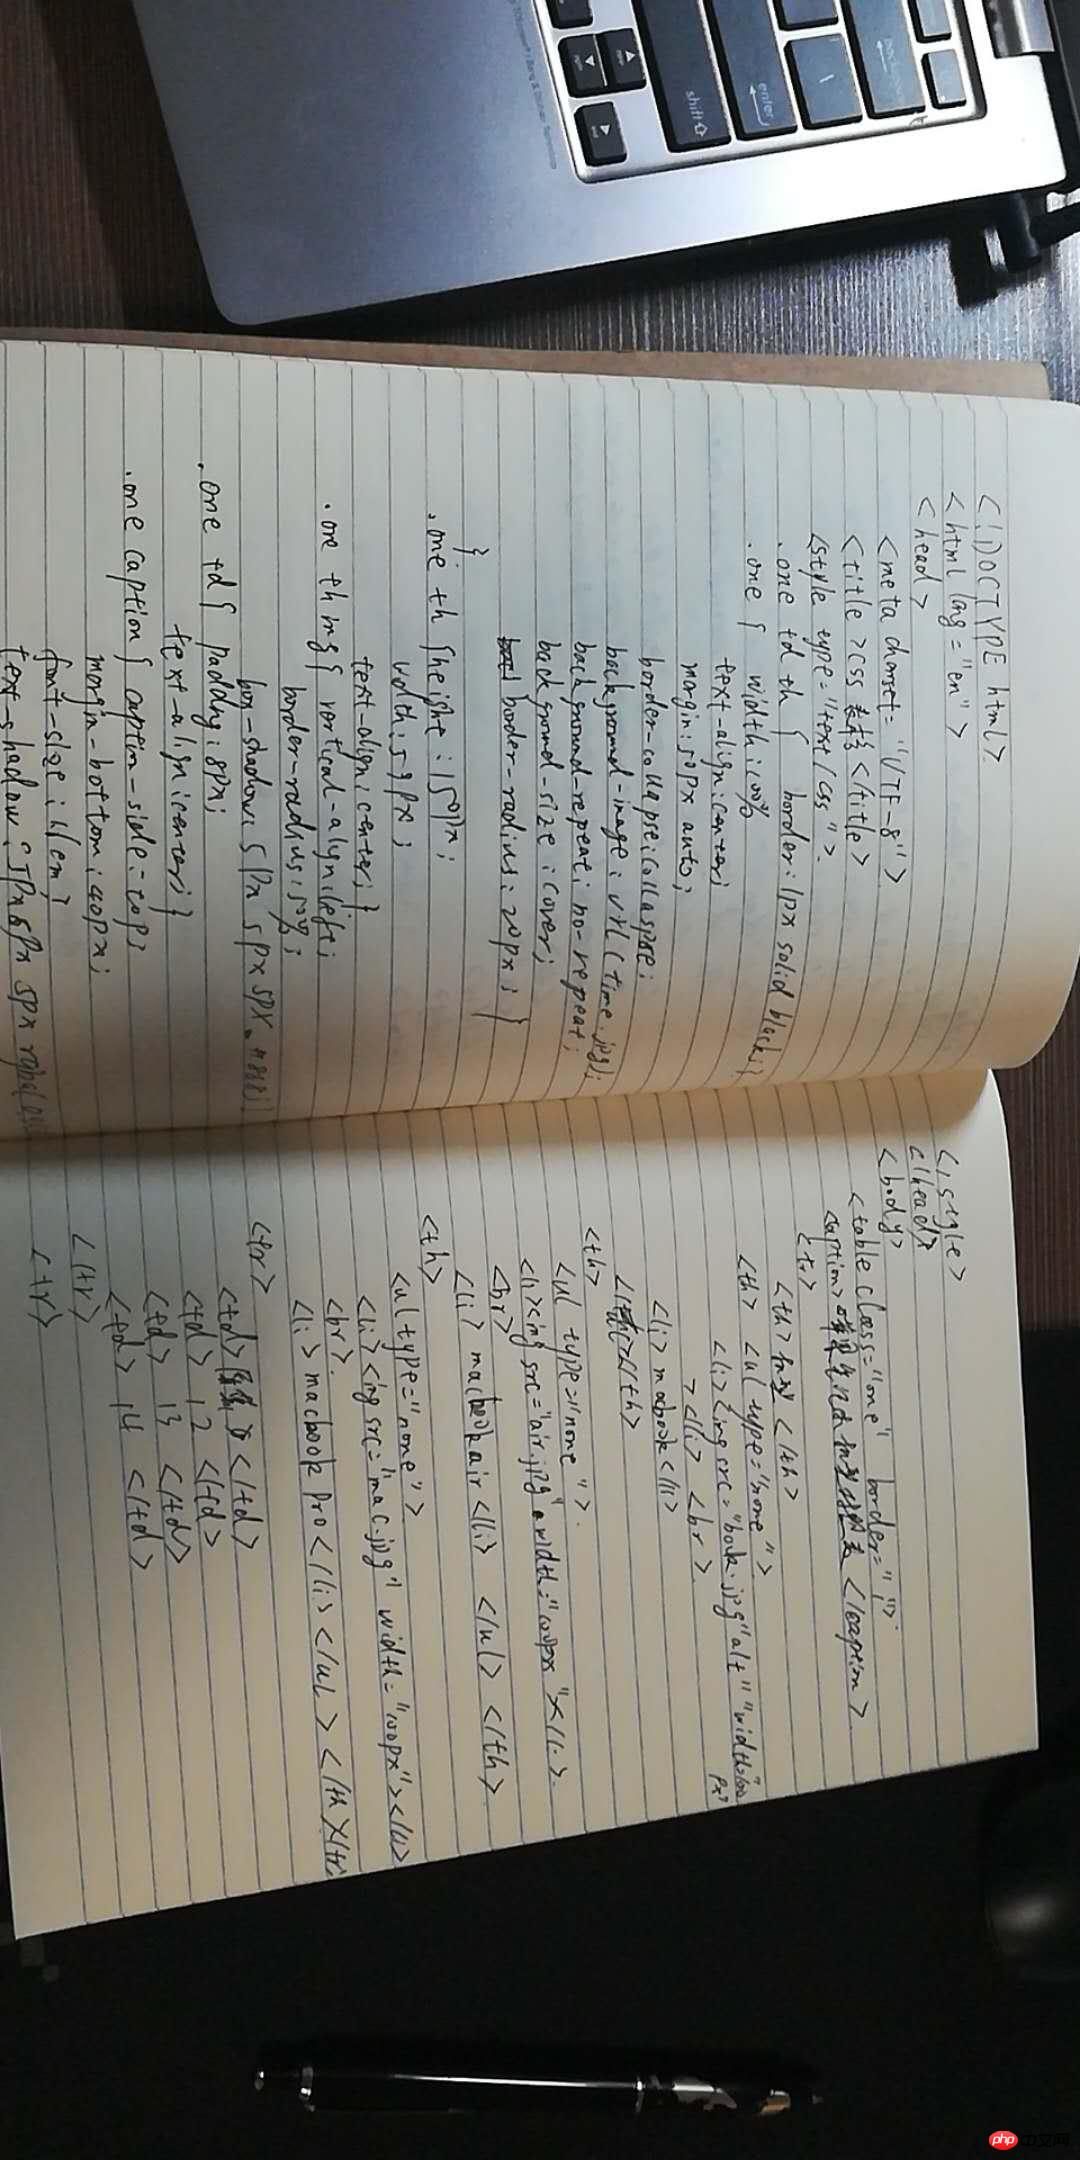 <!DOCTYPE html>
<html lang="en">
<head>
<meta charset="UTF-8">
<title>css 表格</title>
<style type="text/css">
.one td th { border: 1px solid black;}
.one { width: 100%
text-align: center;
margin: 50px auto;
border-collapse: collaspse;
background-image: url(time.jpg);
background-repeat: no-repeat;
background-size: cover;
border-radius: 20px; }
}
.one th {height: 150px;
width: 50px;
text-align: center; }
.one th img { vertical-align: left;
border-radius: 50%;
box-shadow: 5px 5px 5px #888;}
.one td { padding: 8px;
text-align: center; }
.one caption { caption-side: top;
margin-bottom: 40px;
font-size: em;
text-shadow: 5px 5px 5px
</style>
</head>
<body>
<table class="one" border="1">
<caption> </caption>
<tr>
<th> </th>
<th> <ul type="none">
<li><img src="book.jpg" alt "" width=100
px"
></li> <br>
<li> macbook </li>
</th>
<th>
<ul type="none">
<li><img src="air.jpg" width="100px"></li>
<br>
<li> macbook air </li> </ul> </th>
<th>
<ul type="none">
<li><img src="mac.jpg" width="100px"></li>
<br>
<li> macbook pro </li> </ul> </th></tr>
<tr>
<td> </td>
<td> 12 </td>
<td> 13 </td>
<td> 14 </td>
</tr>
<tr>
shift
enter
php中文网